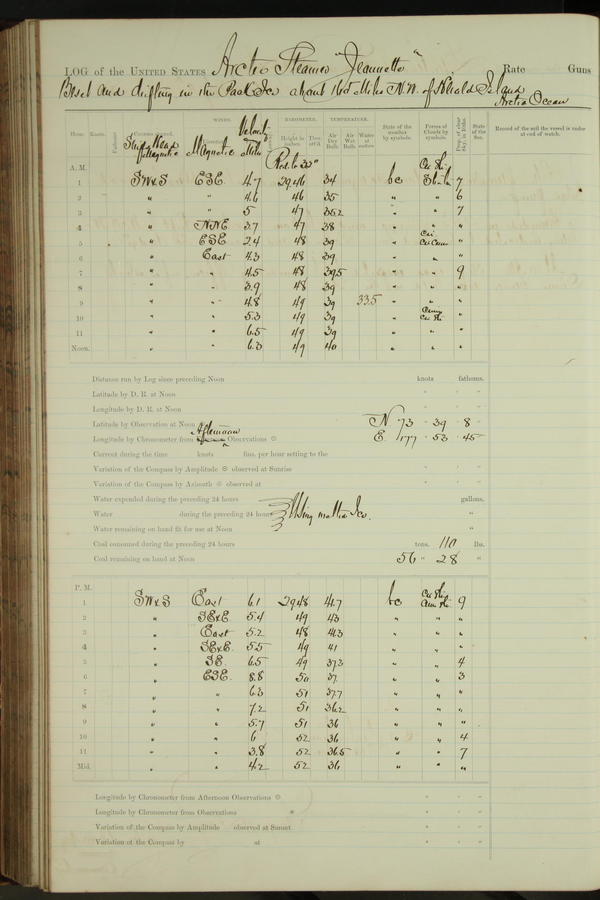 LOG of the UNITED STATES Arctic Steamer "Jeannette" Rate Guns
Beset and drifting in the Pack Ice about 160 Miles N.W. of Herald Island
Arctic Ocean
WINDS. BAROMETER. TEMPERATURE.
Hour. Knots. Fathoms. Courses steered. Height in inches. Ther. att'd. Air Dry Bulb. Air Wet Bulb. Water at surface. State of the weather by symbols. Forms of Clouds by symbols. Prop. of clear Sky, in 10ths. State of the Sea. Record of the sail the vessel is under at end of watch.
Ship's Head Magnetic Magnetic Velocity Miles
Red. to 32°
A. M.
1 SW x S ESE. 4.7 29.46 34 bc 7
2 " " 4.6 46 35 " " 6
3 " " 5 47 35.2 " " 7
4 " NNE 3.7 47 38 " "
5 " ESE 2.4 48 39 " "
6 " East 4.3 48 39 " " "
7 " " 4.5 48 39.5 " " 9
8 " " 3.9 48 39 " " "
9 " " 4.8 49 39 33.5 " " "
10 " " 5.3 49 39 " "
11 " " 6.5 49 39 " " "
Noon. " " 6.3 49 40 " " "
Distance run by Log since preceding Noon knots fathoms.
Latitude by D. R. at Noon ° ' "
Longitude by D. R. at Noon ° ' "
Latitude by Observation at Noon N 73 " 39 " 8 "
Longitude by Chronometer from Afternoon Observations E. 177 " 53 " 45 "
Current during the time knots fms. per hour setting to the
Variation of the Compass by Amplitude observed at Sunrise
Variation of the Compass by Azimuth observed at
Water expended during the preceding 24 hours gallons.
Water during the preceding 24 hours Using melted Ice. "
Water remaining on hand fit for use at Noon "
Coal consumed during the preceding 24 hours tons. 110 lbs.
Coal remaining on hand at Noon 56 " 28 "
P. M.
1 SW x S East 6.1 29.48 41.7 bc 9
2 " SE x E. 5.4 49 43 " " "
3 " East 5.2 48 41.3 " " "
4 " SE x E. 5.5 49 41 " " "
5 " SE. 6.5 49 37.3 " " 4
6 " ESE. 8.8 50 37. " " 3
7 " " 6.3 51 37.7 " " "
8 " " 7.2 51 36.2 " " "
9 " " 5.7 51 36 " " "
10 " " 6 52 36 " " 4
11 " " 3.8 52 36.5 " " 7
Mid. " " 4.2 52 36 " " "
Longitude by Chronometer from Afternoon Observations
Longitude by Chronometer from Observations
Variation of the Compass by Amplitude observed at Sunset
Variation of the Compass by at